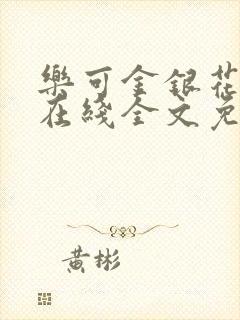 樂可金銀花
在綫全文免
黃彬